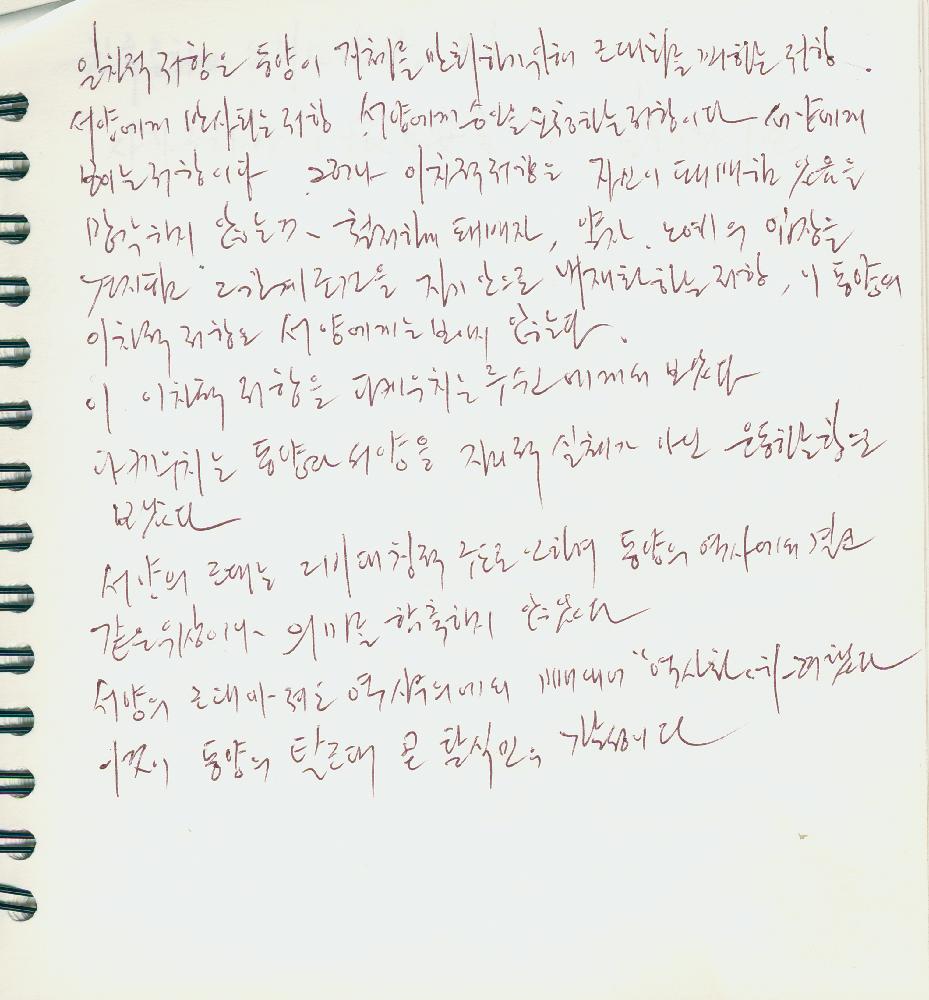 일차적 저항은 동양이 거체를 만회하기 위해 근대화를 꾀하는 저항.
서양에게 반사되는 저항 서양에게 승인을 요청하는 저항이다 서양에게
보이는 저항이다 그러나 이차적 저항은 자신이 패배함 있음을
망각하지 않는 것, 철저하게 패배자, 약자, 노예의 입장을
견지하고 그 관계 조건을 자기 안으로 내재화하는 저항, 이 동양의
이차적 저항은 서양에게는 보이지 않는다.
이 이차적 저항을 다케우치는 루쉰에게서 보았다
다케우치는 동양과 서양을 지리적 실체가 아닌 운동하는 항으로
보았다
서양의 근대는 비대칭적 구도로 인하여 동양의 역사에서 결코
같은 위상이나 의미를 함축하지 않았다
서양의 근대마저도 역사주의에서 빼내어 "역사화" 하려 했다
이것이 동양의 탈근대 곧 탈식민의 가능성이다